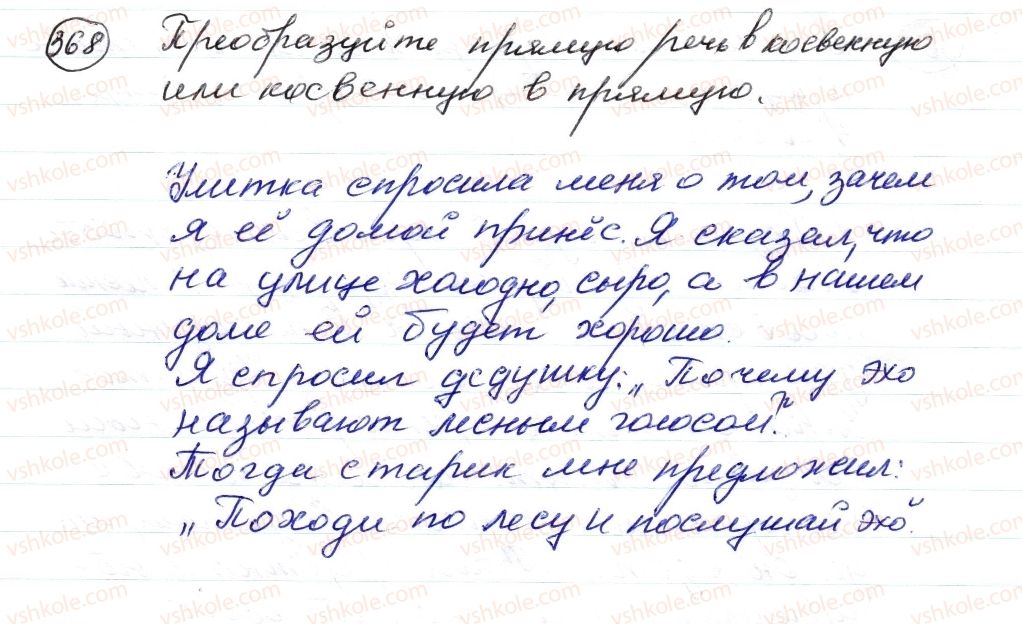 368 Преобразуйте прямую речь в косвенную
или косвенную в прямую.
Улитка спросила меня о том, зачем
я её домой принёс. Я сказал, что
на улице холодно, сыро, а в нашем
доме ей будет хорошо.
Я спросил дедушку: „Почему эхо
называют лесным голосом?"
Тогда старик мне предложил:
„Походи по лесу и послушай эхо".